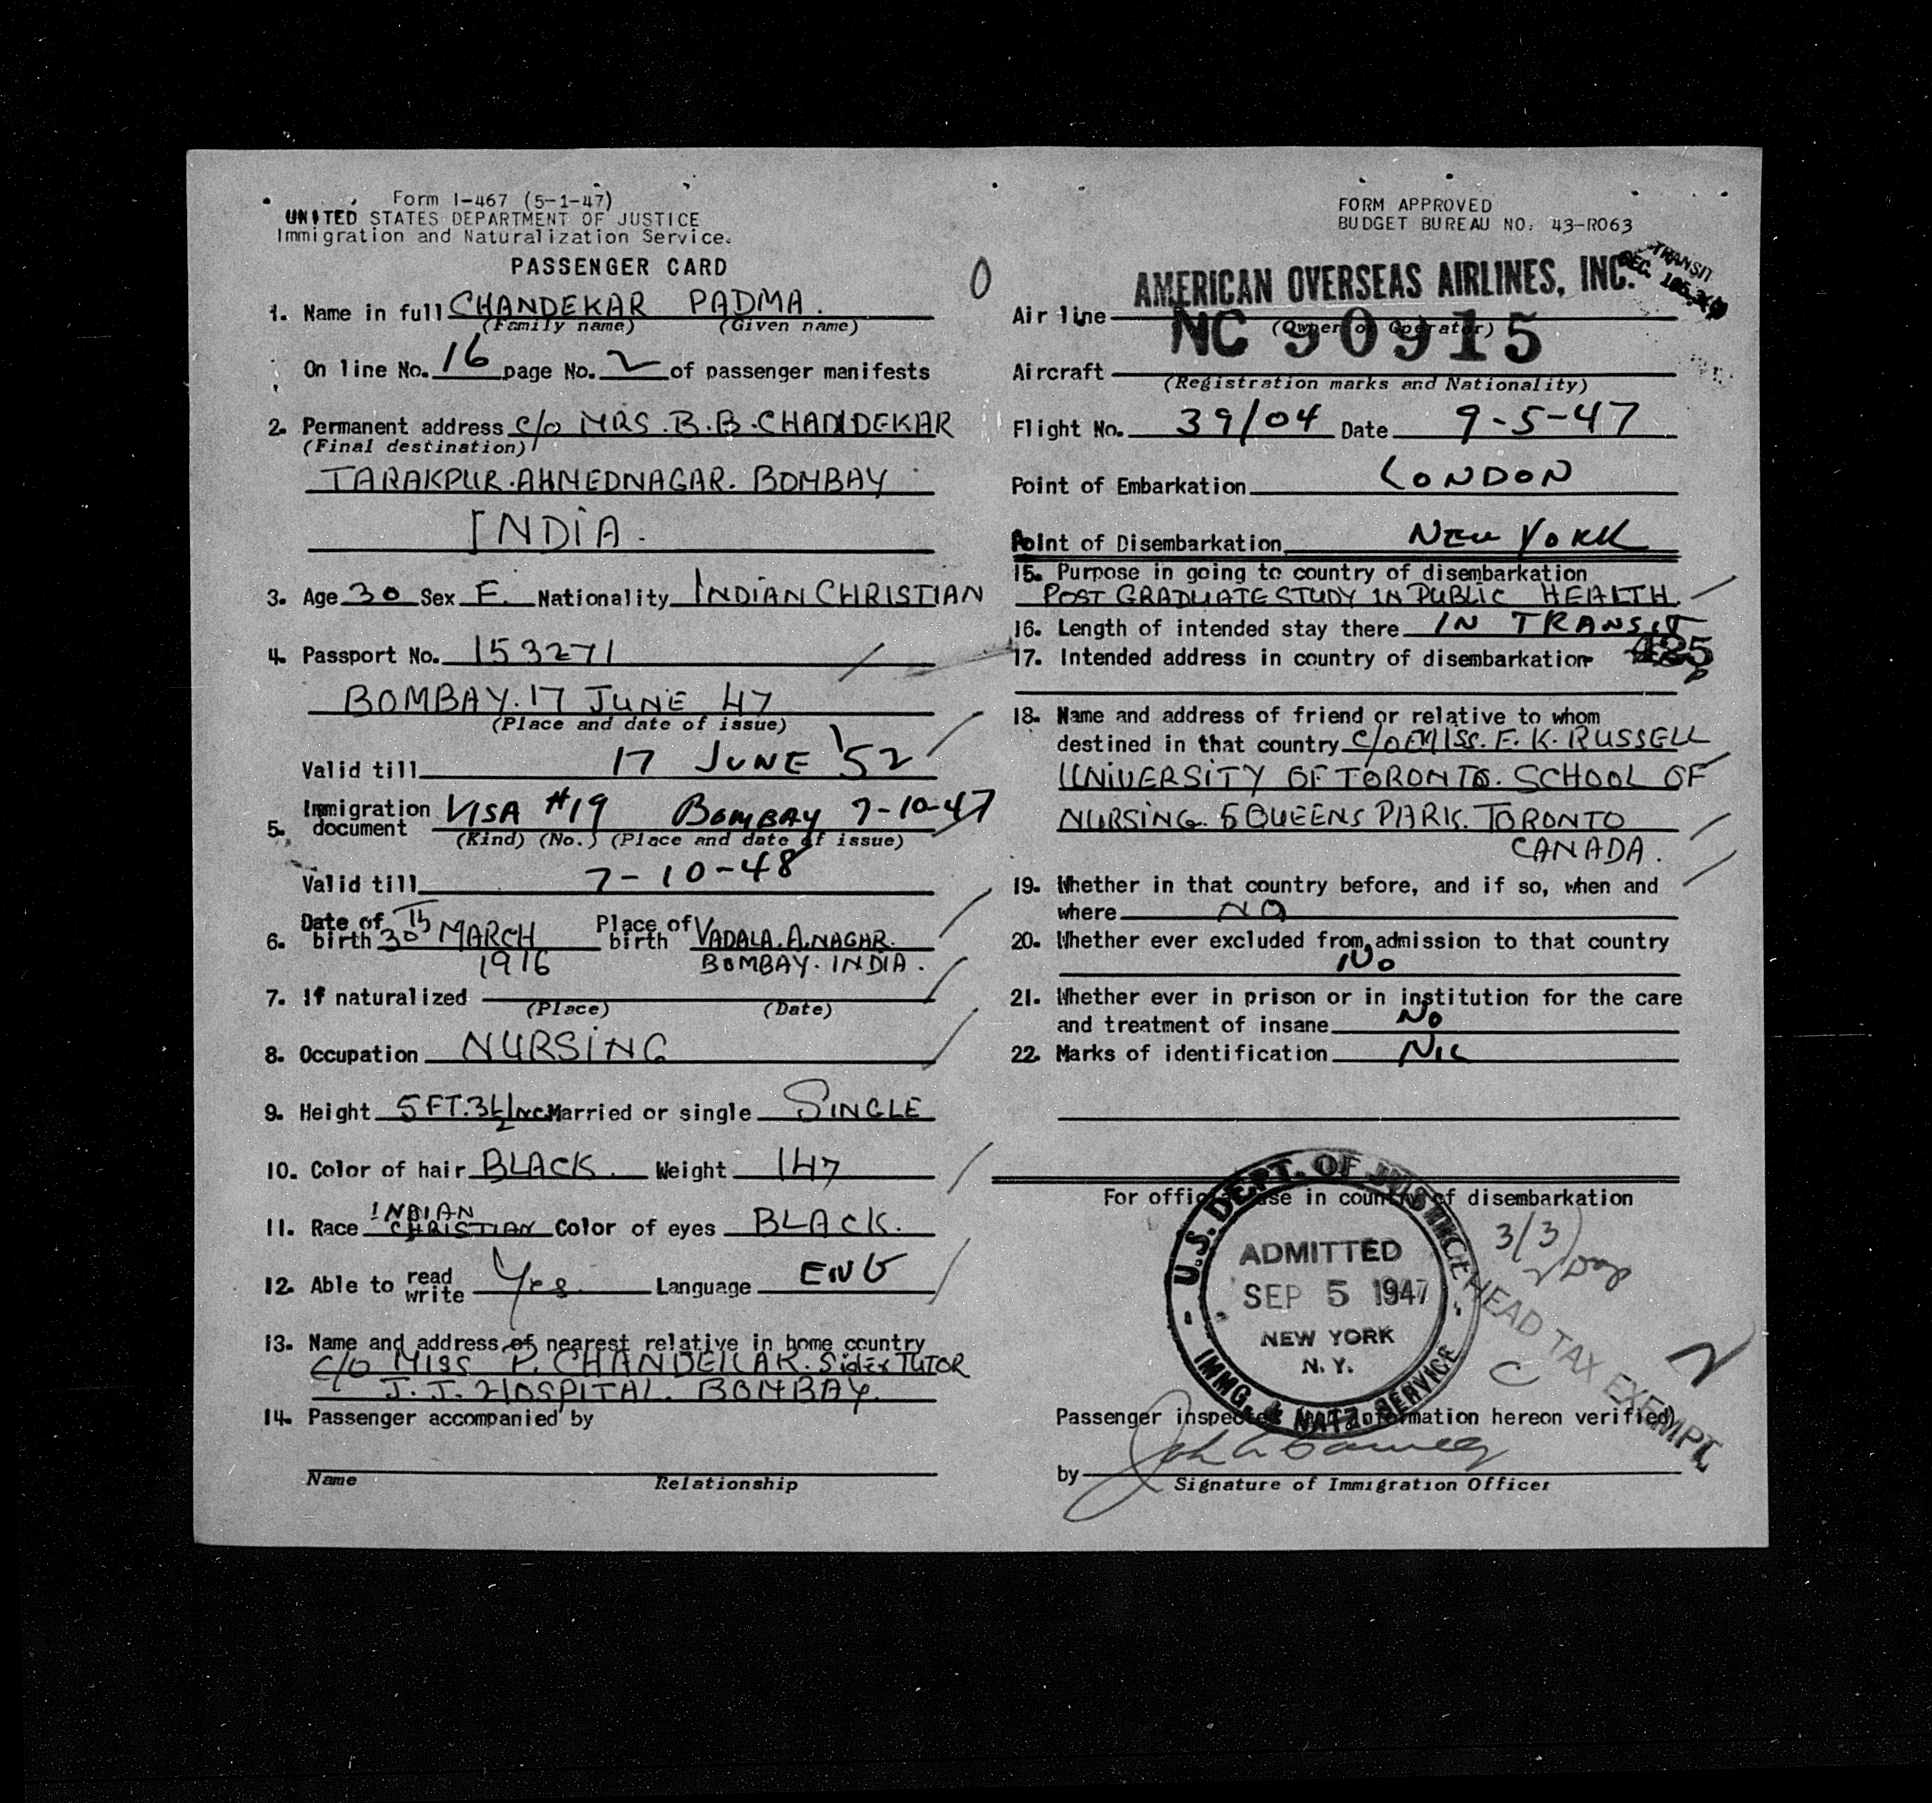 Form I-467 (5-1-47)
UNITED STATES DEPARTMENT OF JUSTICE
Immigration and Naturalization Service.
PASSENGER CARD
1. Name in full CHANDEKAR PADMA.
(Family name) (Given name)
On line No. 16 page No. 2 of passenger manifests
2. Permanent address c/o MRS. B. B. CHANDEKAR
(Final destination)
TARAKPUR. AHMEDNAGAR. BOMBAY
INDIA.
3. Age 30 Sex F. Nationality INDIAN CHRISTIAN
4. Passport No. 153271
BOMBAY. 17 JUNE 47
(Place and date of issue)
Valid till 17 JUNE '52
5. Immigration document VISA #19 BOMBAY 7-10-47
(Kind) (No.) (Place and date of issue)
Valid till 7-10-48
6. Date of birth 30th MARCH 1916 Place of birth VADALA. A. NAGAR. BOMBAY. INDIA.
7. If naturalized
(Place) (Date)
8. Occupation NURSING
9. Height 5 FT. 3½ INC. Married or single SINGLE
10. Color of hair BLACK. Weight 147
11. Race INDIAN CHRISTIAN Color of eyes BLACK.
12. Able to read write Yes Language ENG
13. Name and address of nearest relative in home country
c/o MISS P. CHANDEKAR. Sister TUTOR
J. J. HOSPITAL. BOMBAY.
14. Passenger accompanied by
Name Relationship
0
FORM APPROVED
BUDGET BUREAU NO. 43-R063
TRANSIT
Air line AMERICAN OVERSEAS AIRLINES, INC.
(Owner or Operator)
Aircraft NC 90915
(Registration marks and Nationality)
Flight No. 39/04 Date 9-5-47
Point of Embarkation LONDON
Point of Disembarkation NEW YORK
15. Purpose in going to country of disembarkation
POST GRADUATE STUDY IN PUBLIC HEALTH.
16. Length of intended stay there IN TRANSIT
17. Intended address in country of disembarkation
18. Name and address of friend or relative to whom
destined in that country c/o MISS. E. K. RUSSELL
UNIVERSITY OF TORONTO. SCHOOL OF
NURSING. 5 QUEENS PARK. TORONTO
CANADA.
19. Whether in that country before, and if so, when and
where NO
20. Whether ever excluded from admission to that country
No
21. Whether ever in prison or in institution for the care
and treatment of insane No
22. Marks of identification NIL
For official use in country of disembarkation
U.S. DEPT. OF JUSTICE
ADMITTED
SEP 5 1947
NEW YORK
N. Y.
IMMG. & NATZ. SERVICE
3/3
2
C
HEAD TAX EXEMPT
Passenger inspected and information hereon verified
by
Signature of Immigration Officer